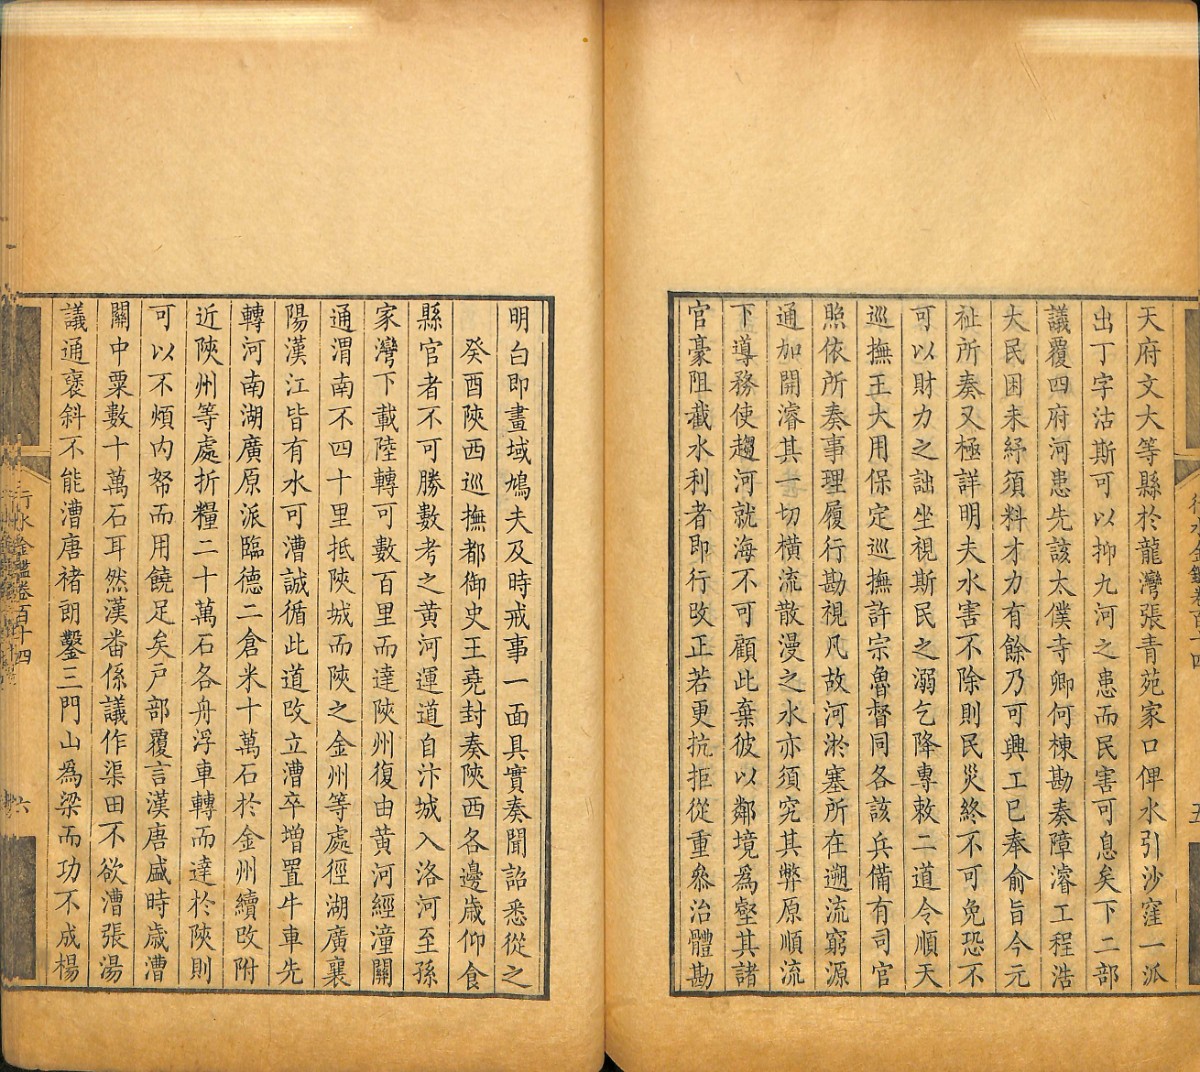 天府文大等縣於龍灣張青苑家口俾水引沙窪一派
出丁字沽斯可以抑九河之患而民害可息矣下二部
議覆四府河患先該太僕寺卿何棟勘奏障濬工程浩
大民困未紓須料才力有餘乃可興工已奉俞旨今元
祉所奏又極詳明夫水害不除則民災終不可免恐不
可以財力之詘坐視斯民之溺乞降專敕二道令順天
巡撫王大用保定巡撫許宗魯督同各該兵備有司官
照依所奏事理履行勘視凡故河淤塞所在遡流窮源
通加開濬其一切橫流散漫之水亦須究其弊原順流
下導務使趨河就海不可顧此棄彼以鄰境為壑其諸
官豪阻截水利者即行改正若更抗拒從重叅治體勘
明白即畫域鳩夫及時戒事一面具實奏聞詔悉從之
癸酉陝西巡撫都御史王堯封奏陝西各邊歲仰食
縣官者不可勝數考之黃河運道自汴城入洛河至孫
家灣下載陸轉可數百里而達陝州復由黃河經潼關
通渭南不四十里抵陝城而陝之金州等處徑湖廣襄
陽漢江皆有水可漕誠循此道改立漕卒增置牛車先
轉河南湖廣原派臨德二倉米十萬石於金州續改附
近陝州等處折糧二十萬石各舟浮車轉而達於陝則
可以不煩內帑而用饒足矣戶部覆言漢唐盛時歲漕
關中粟數十萬石耳然漢畨係議作渠田不欲漕張湯
議通褒斜不能漕唐褚朗鑿三門山為梁而功不成楊
行水金鑑卷百十四
六